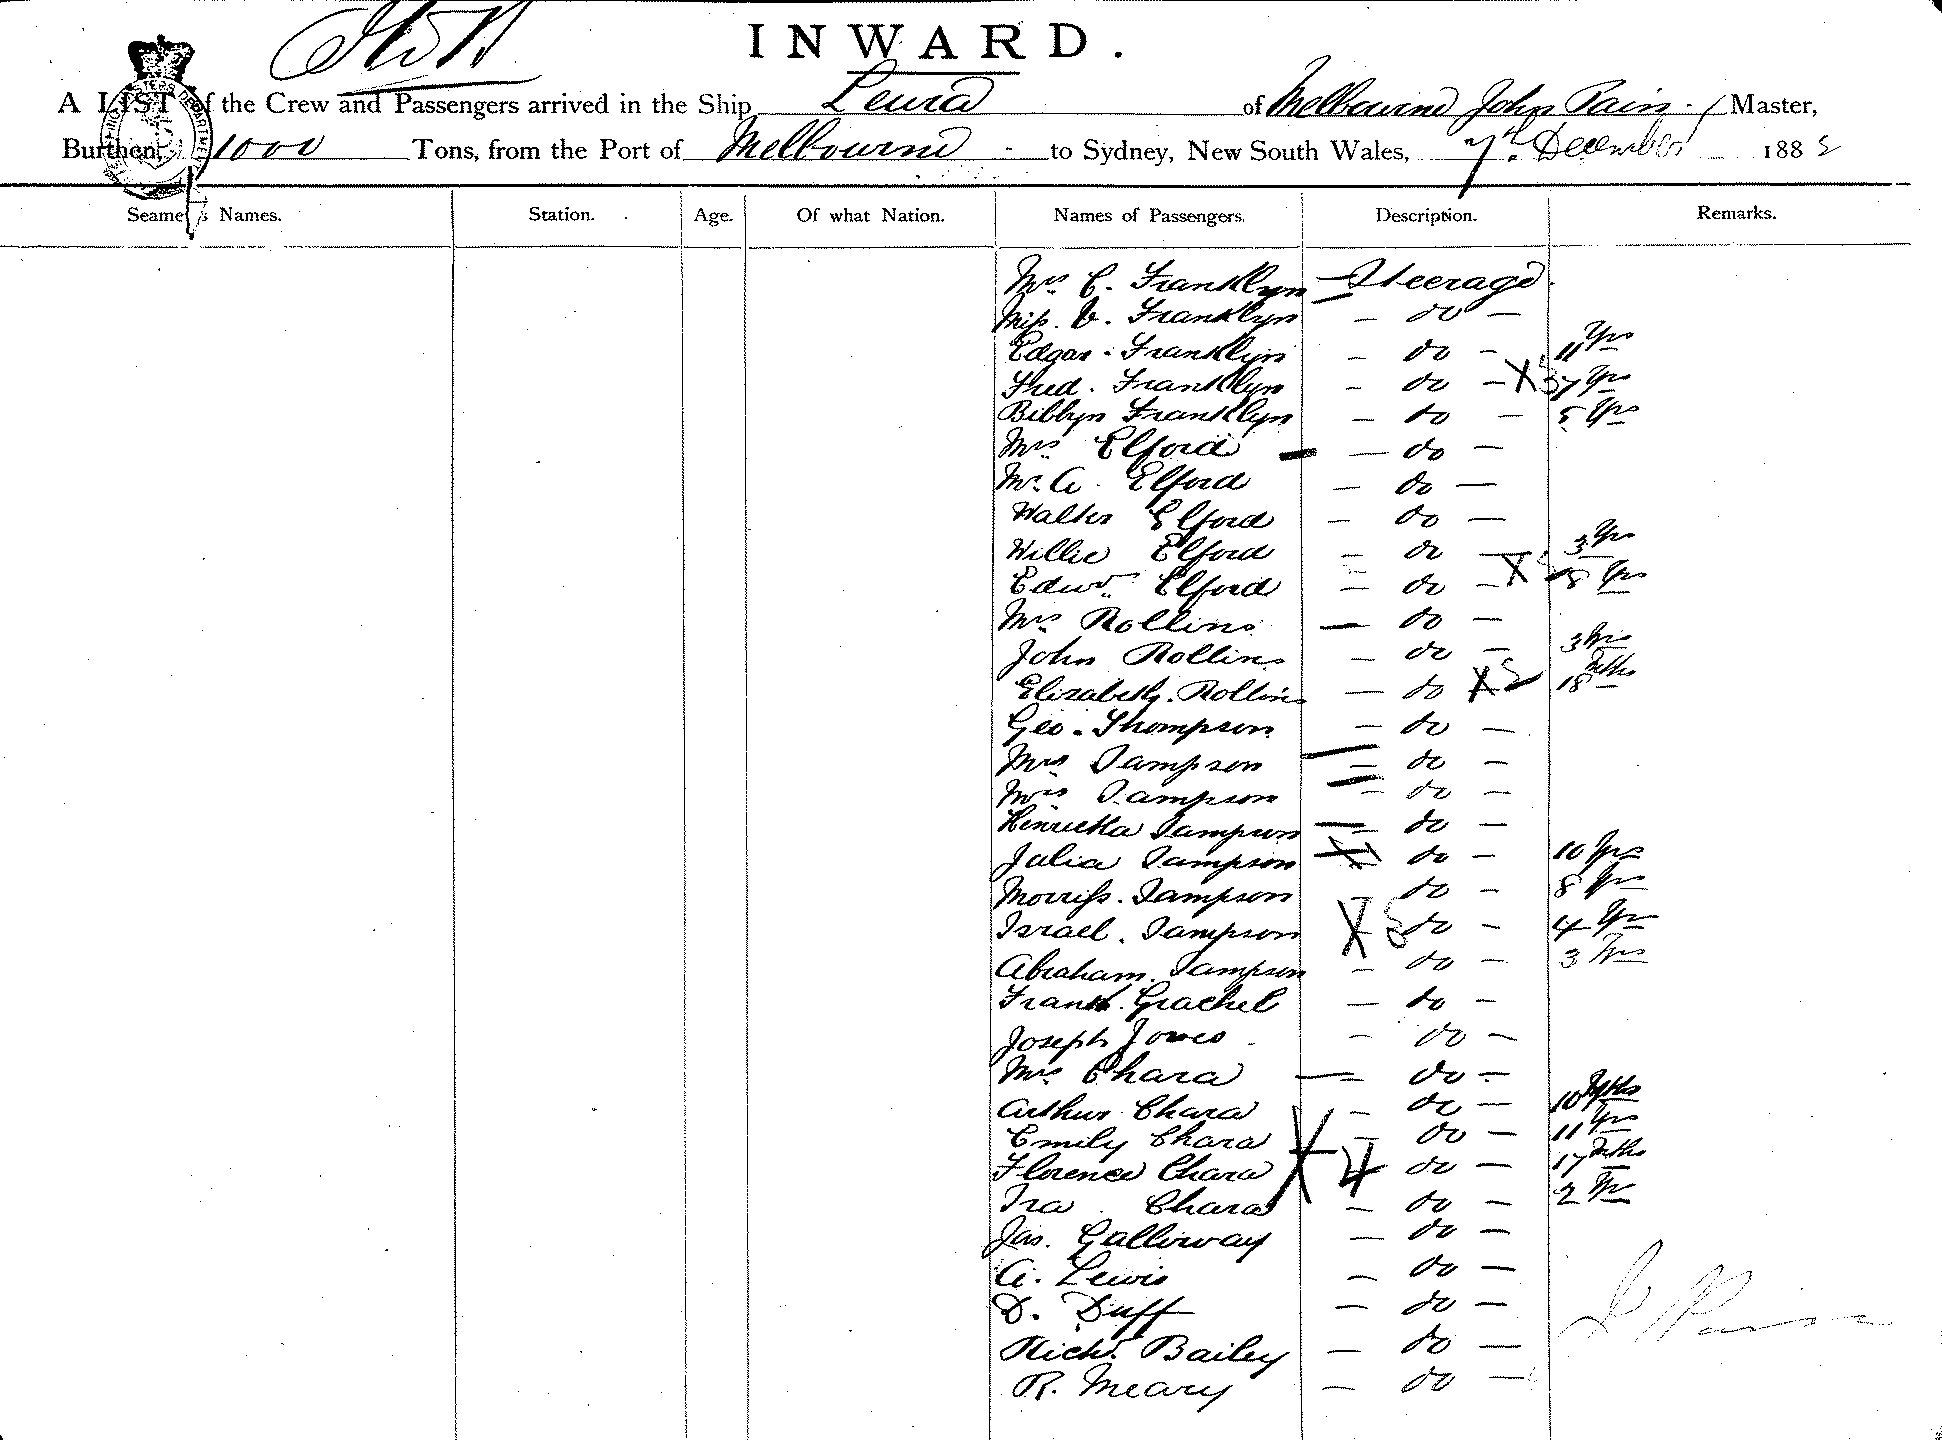 INWARD.
A LIST of the Crew and Passengers arrived in the Ship Leura of Melbourne John Pain Master,
Burthen 1000 Tons, from the Port of Melbourne to Sydney, New South Wales, 7th December 1882
Seamen's Names. Station. Age. Of what Nation. Names of Passengers. Description. Remarks.
Mrs C. Franklyn — Steerage
Miss V. Franklyn — do —
Edgar Franklyn — do — 11 Yrs
Fred. Franklyn — do — X 3 7 Yrs
Bibbyn Franklyn — do — 5 Yrs
Mrs Elford — do —
Mr. A. Elford — do —
Walter Elford — do —
Willie Elford — do — 3 Yrs
Edwd Elford — do — X 8 Yrs
Mrs Rollins — do —
John Rollins — do — 3 Yrs
Elizabeth Rollins — do X 2 18 Mths
Geo. Thompson — do —
Mrs Sampson — do —
Miss Sampson — do —
Henrietta Sampson — do —
Julia Sampson — do — 10 Yrs
Morriss. Sampson do — 8 Yrs
Israel. Sampson X do — 4 Yrs
Abraham. Sampson — do — 3 Yrs
Frank Grachel — do —
Joseph Jones — do —
Mrs Chara — do —
Arthur Chara — do — 10 Mths
Emily Chara — do — 11 Yrs
Florence Chara X 4 do — 17 Mths
Ira Chara — do — 2 Yrs
Jas. Galloway — do —
A. Lewis — do —
D. Duff — do —
Richd. Bailey — do —
R. Meary — do —
J Pain